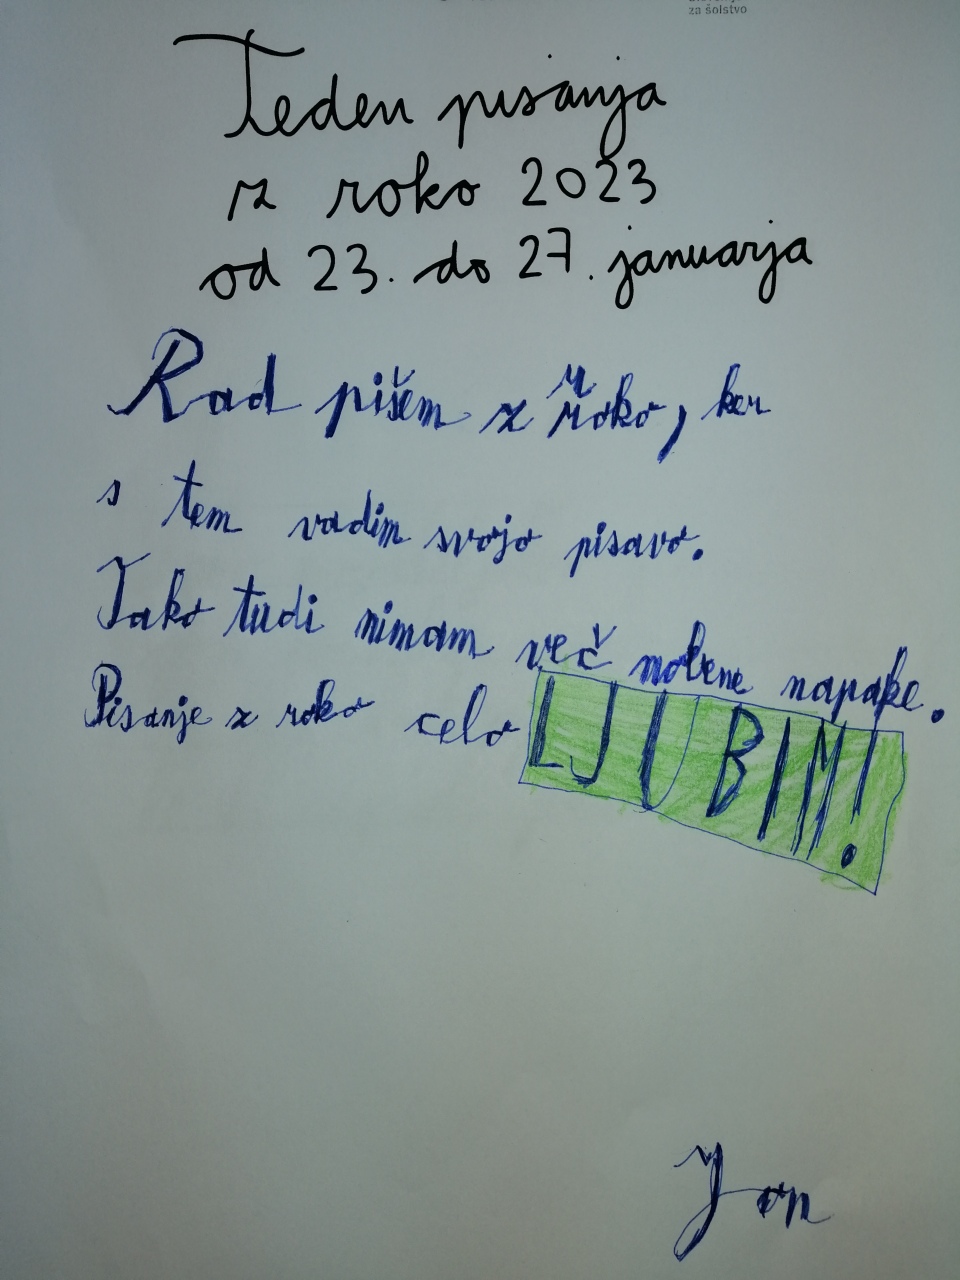 za šolstvo
Teden pisanja
z roko 2023
od 23. do 27. januarja
Rad pišem z roko, ker
s tem vadim svojo pisavo.
Tako tudi nimam več nobene napake.
Pisanje z roko celo LJUBIM!
Jon